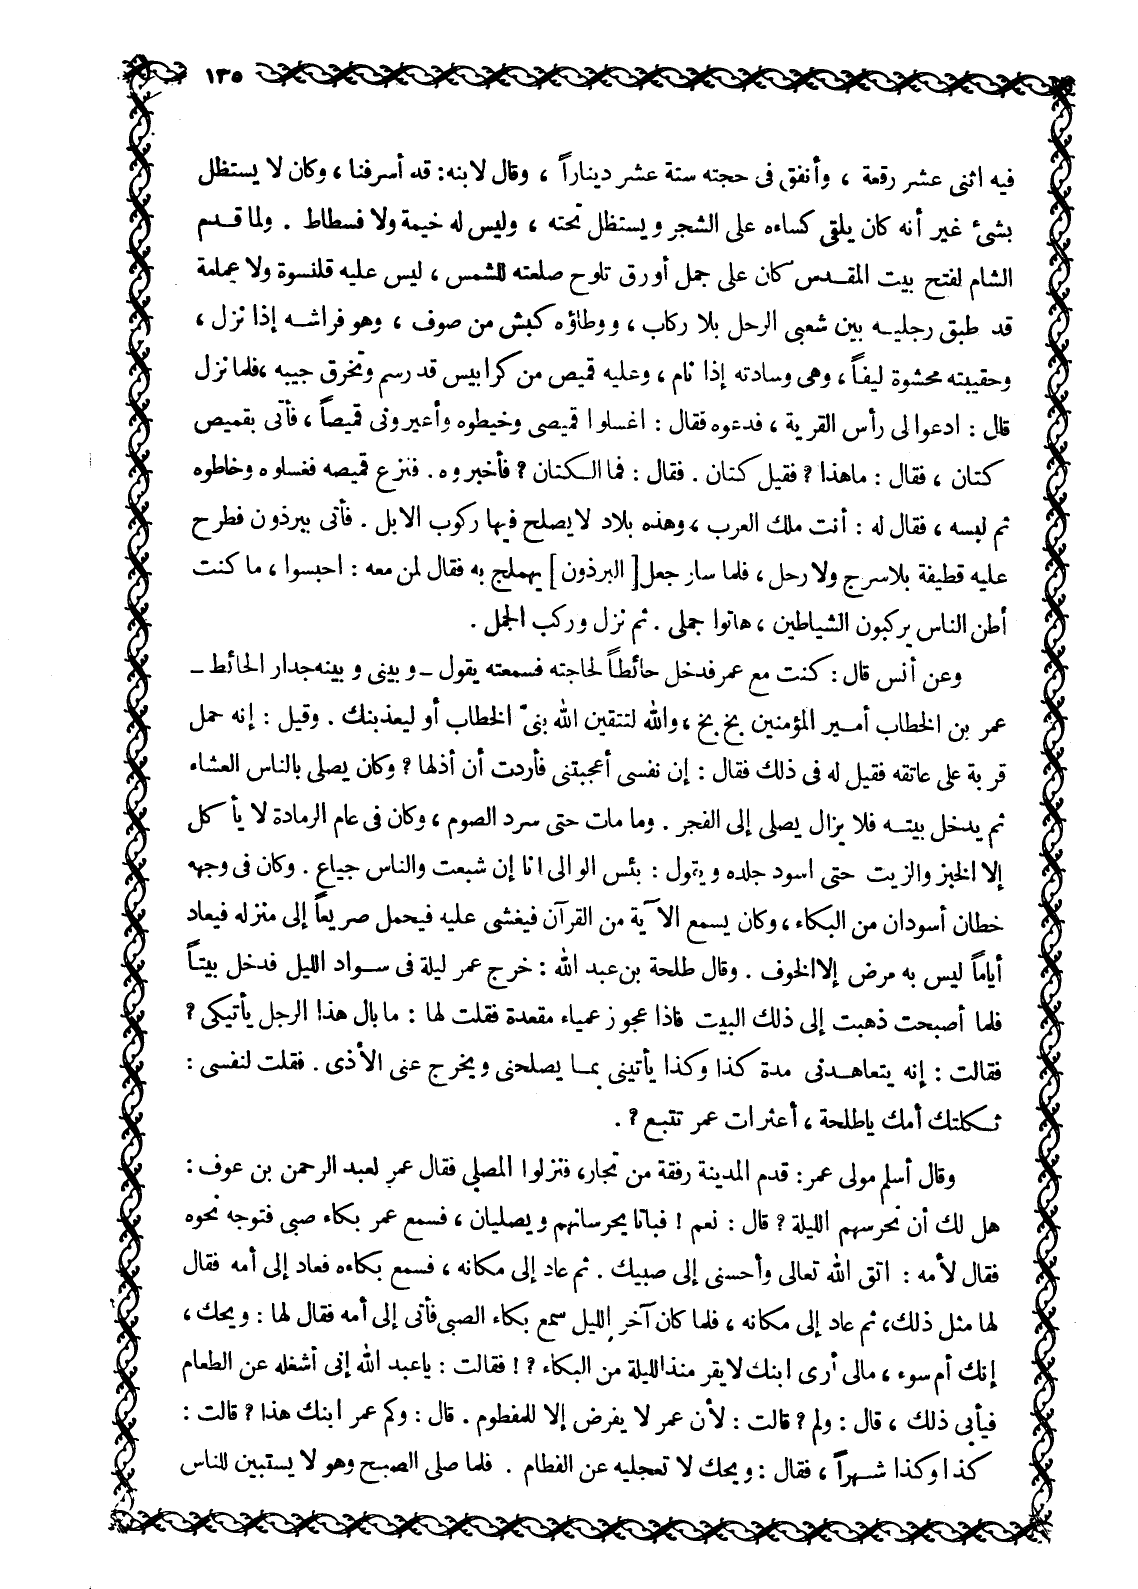 ١٣٥
فيه اثنى عشر رقعة ، وأنفق فى حجته ستة عشر ديناراً ، وقال لابنه: قد أسرفنا ، وكان لا يستظل
بشئ غير أنه كان يلقى كساءه على الشجر ويستظل تحته ، وليس له خيمة ولا فسطاط . ولما قدم
الشام لفتح بيت المقدس كان على جمل أورق تلوح صلعته للشمس ، ليس عليه قلنسوة ولا عمامة
قد طبق رجليه بين شعبى الرحل بلا ركاب ، ووطاؤه كبش من صوف ، وهو فراشه إذا نزل ،
وحقيبته محشوة ليفاً ، وهى وسادته إذا نام ، وعليه قميص من كرابيس قد رسم وتخرق جيبه ، فلما نزل
قال : ادعوا لى رأس القرية ، فدعوه فقال : اغسلوا قميصى وخيطوه وأعيرونى قميصاً ، فأتى بقميص
كتان ، فقال : ماهذا ؟ فقيل كتان . فقال : فما الكتان ؟ فأخبروه . فنزع قميصه فغسلوه وخاطوه
ثم لبسه ، فقال له : أنت ملك العرب ، وهذه بلاد لا يصلح فيها ركوب الابل . فأتى ببرذون فطرح
عليه قطيفة بلا سرج ولا رحل ، فلما سار جعل [ البرذون ] يهملج به فقال لمن معه : احبسوا ، ما كنت
أظن الناس يركبون الشياطين ، هاتوا جملى . ثم نزل وركب الجمل .
وعن أنس قال : كنت مع عمر فدخل حائطاً لحاجته فسمعته يقول ــ وبينى وبينه جدار الحائط ــ
عمر بن الخطاب أمير المؤمنين بخ بخ ، والله لتتقين الله بنىّ الخطاب أو ليعذبنك . وقيل : إنه حمل
قربة على عاتقه فقيل له فى ذلك فقال : إن نفسى أعجبتنى فأردت أن أذلها ؟ وكان يصلى بالناس العشاء
ثم يدخل بيته فلا يزال يصلى إلى الفجر . وما مات حتى سرد الصوم ، وكان فى عام الرمادة لا يأكل
إلا الخبز والزيت حتى اسود جلده ويقول : بئس الوالى انا إن شبعت والناس جياع . وكان فى وجهه
خطان أسودان من البكاء ، وكان يسمع الآية من القرآن فيغشى عليه فيحمل صريعاً إلى منزله فيعاد
أياماً ليس به مرض إلا الخوف . وقال طلحة بن عبد الله : خرج عمر ليلة فى سواد الليل فدخل بيتاً
فلما أصبحت ذهبت إلى ذلك البيت فاذا عجوز عمياء مقعدة فقلت لها : ما بال هذا الرجل يأتيكى ؟
فقالت : إنه يتعاهدنى مدة كذا وكذا يأتينى بما يصلحنى ويخرج عنى الأذى . فقلت لنفسى :
ثكلتك أمك ياطلحة ، أعثرات عمر تتبع ؟ .
وقال أسلم مولى عمر : قدم المدينة رفقة من تجار، فنزلوا المصلى فقال عمر لعبد الرحمن بن عوف :
هل لك أن نحرسهم الليلة ؟ قال : نعم ! فباتا يحرسانهم ويصليان ، فسمع عمر بكاء صبى فتوجه نحوه
فقال لأمه : اتق الله تعالى وأحسنى إلى صبيك . ثم عاد إلى مكانه ، فسمع بكاءه فعاد إلى أمه فقال
لها مثل ذلك، ثم عاد إلى مكانه ، فلما كان آخر الليل سمع بكاء الصبى فأتى إلى أمه فقال لها : ويحك ،
إنك أم سوء ، مالى أرى ابنك لا يقر منذ الليلة من البكاء ؟ ! فقالت : ياعبد الله إنى أشغله عن الطعام
فيأبى ذلك ، قال : ولم ؟ قالت : لأن عمر لا يفرض إلا للمفطوم . قال : وكم عمر ابنك هذا ؟ قالت :
كذا وكذا شهراً ، فقال : ويحك لا تعجليه عن الفطام . فلما صلى الصبح وهو لا يستبين للناس